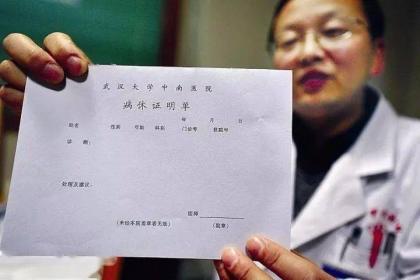 武汉大学中南医院
病休证明单
年 月 日
姓名 性别 年龄 科别 门诊号 住院号
诊断：
处理及建议：
医师
（未经本院盖章者无效） （盖章）